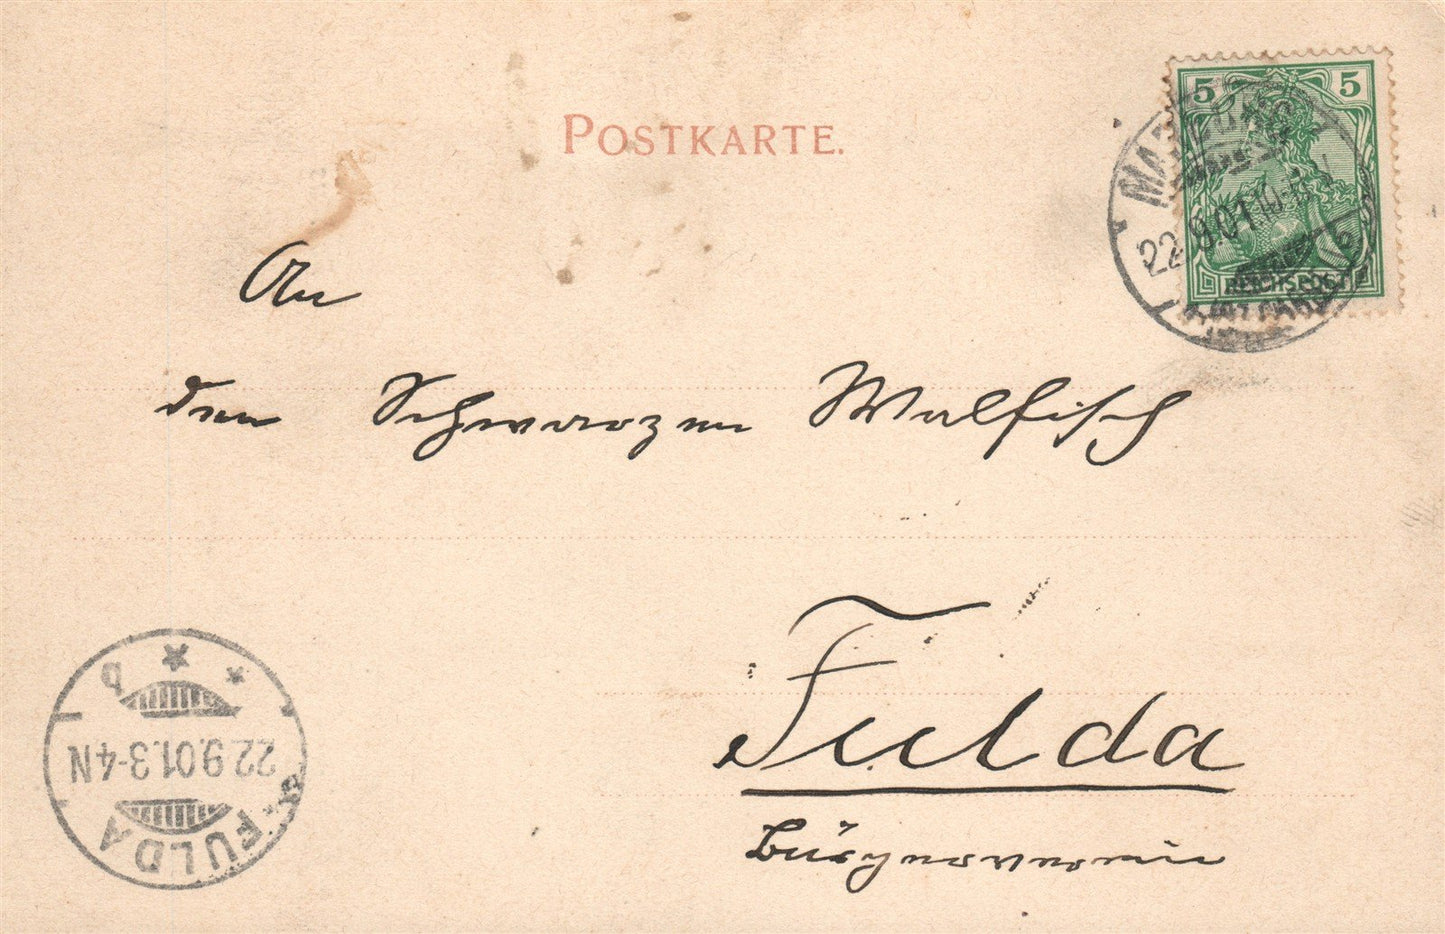 POSTKARTE.
5 5
22.9.01.10-
REICHSPOST
An
den Schwarzen Walfisch
Fulda
Bürgerverein
FULDA
22.9.01.3-4N
b